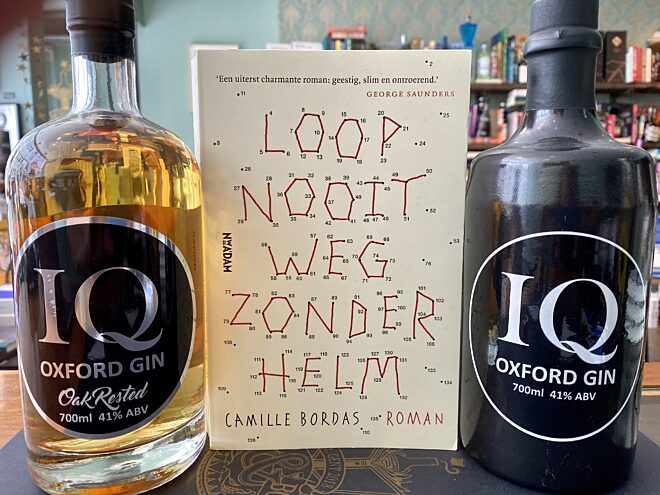 IQ
OXFORD GIN
Oak Rested
700ml 41% ABV
'Een uiterst charmante roman: geestig, slim en ontroerend.'
GEORGE SAUNDERS
LOOP
NOOIT
WEG
ZONDER
HELM
CAMILLE BORDAS ROMAN
IQ
OXFORD GIN
700ml 41% ABV